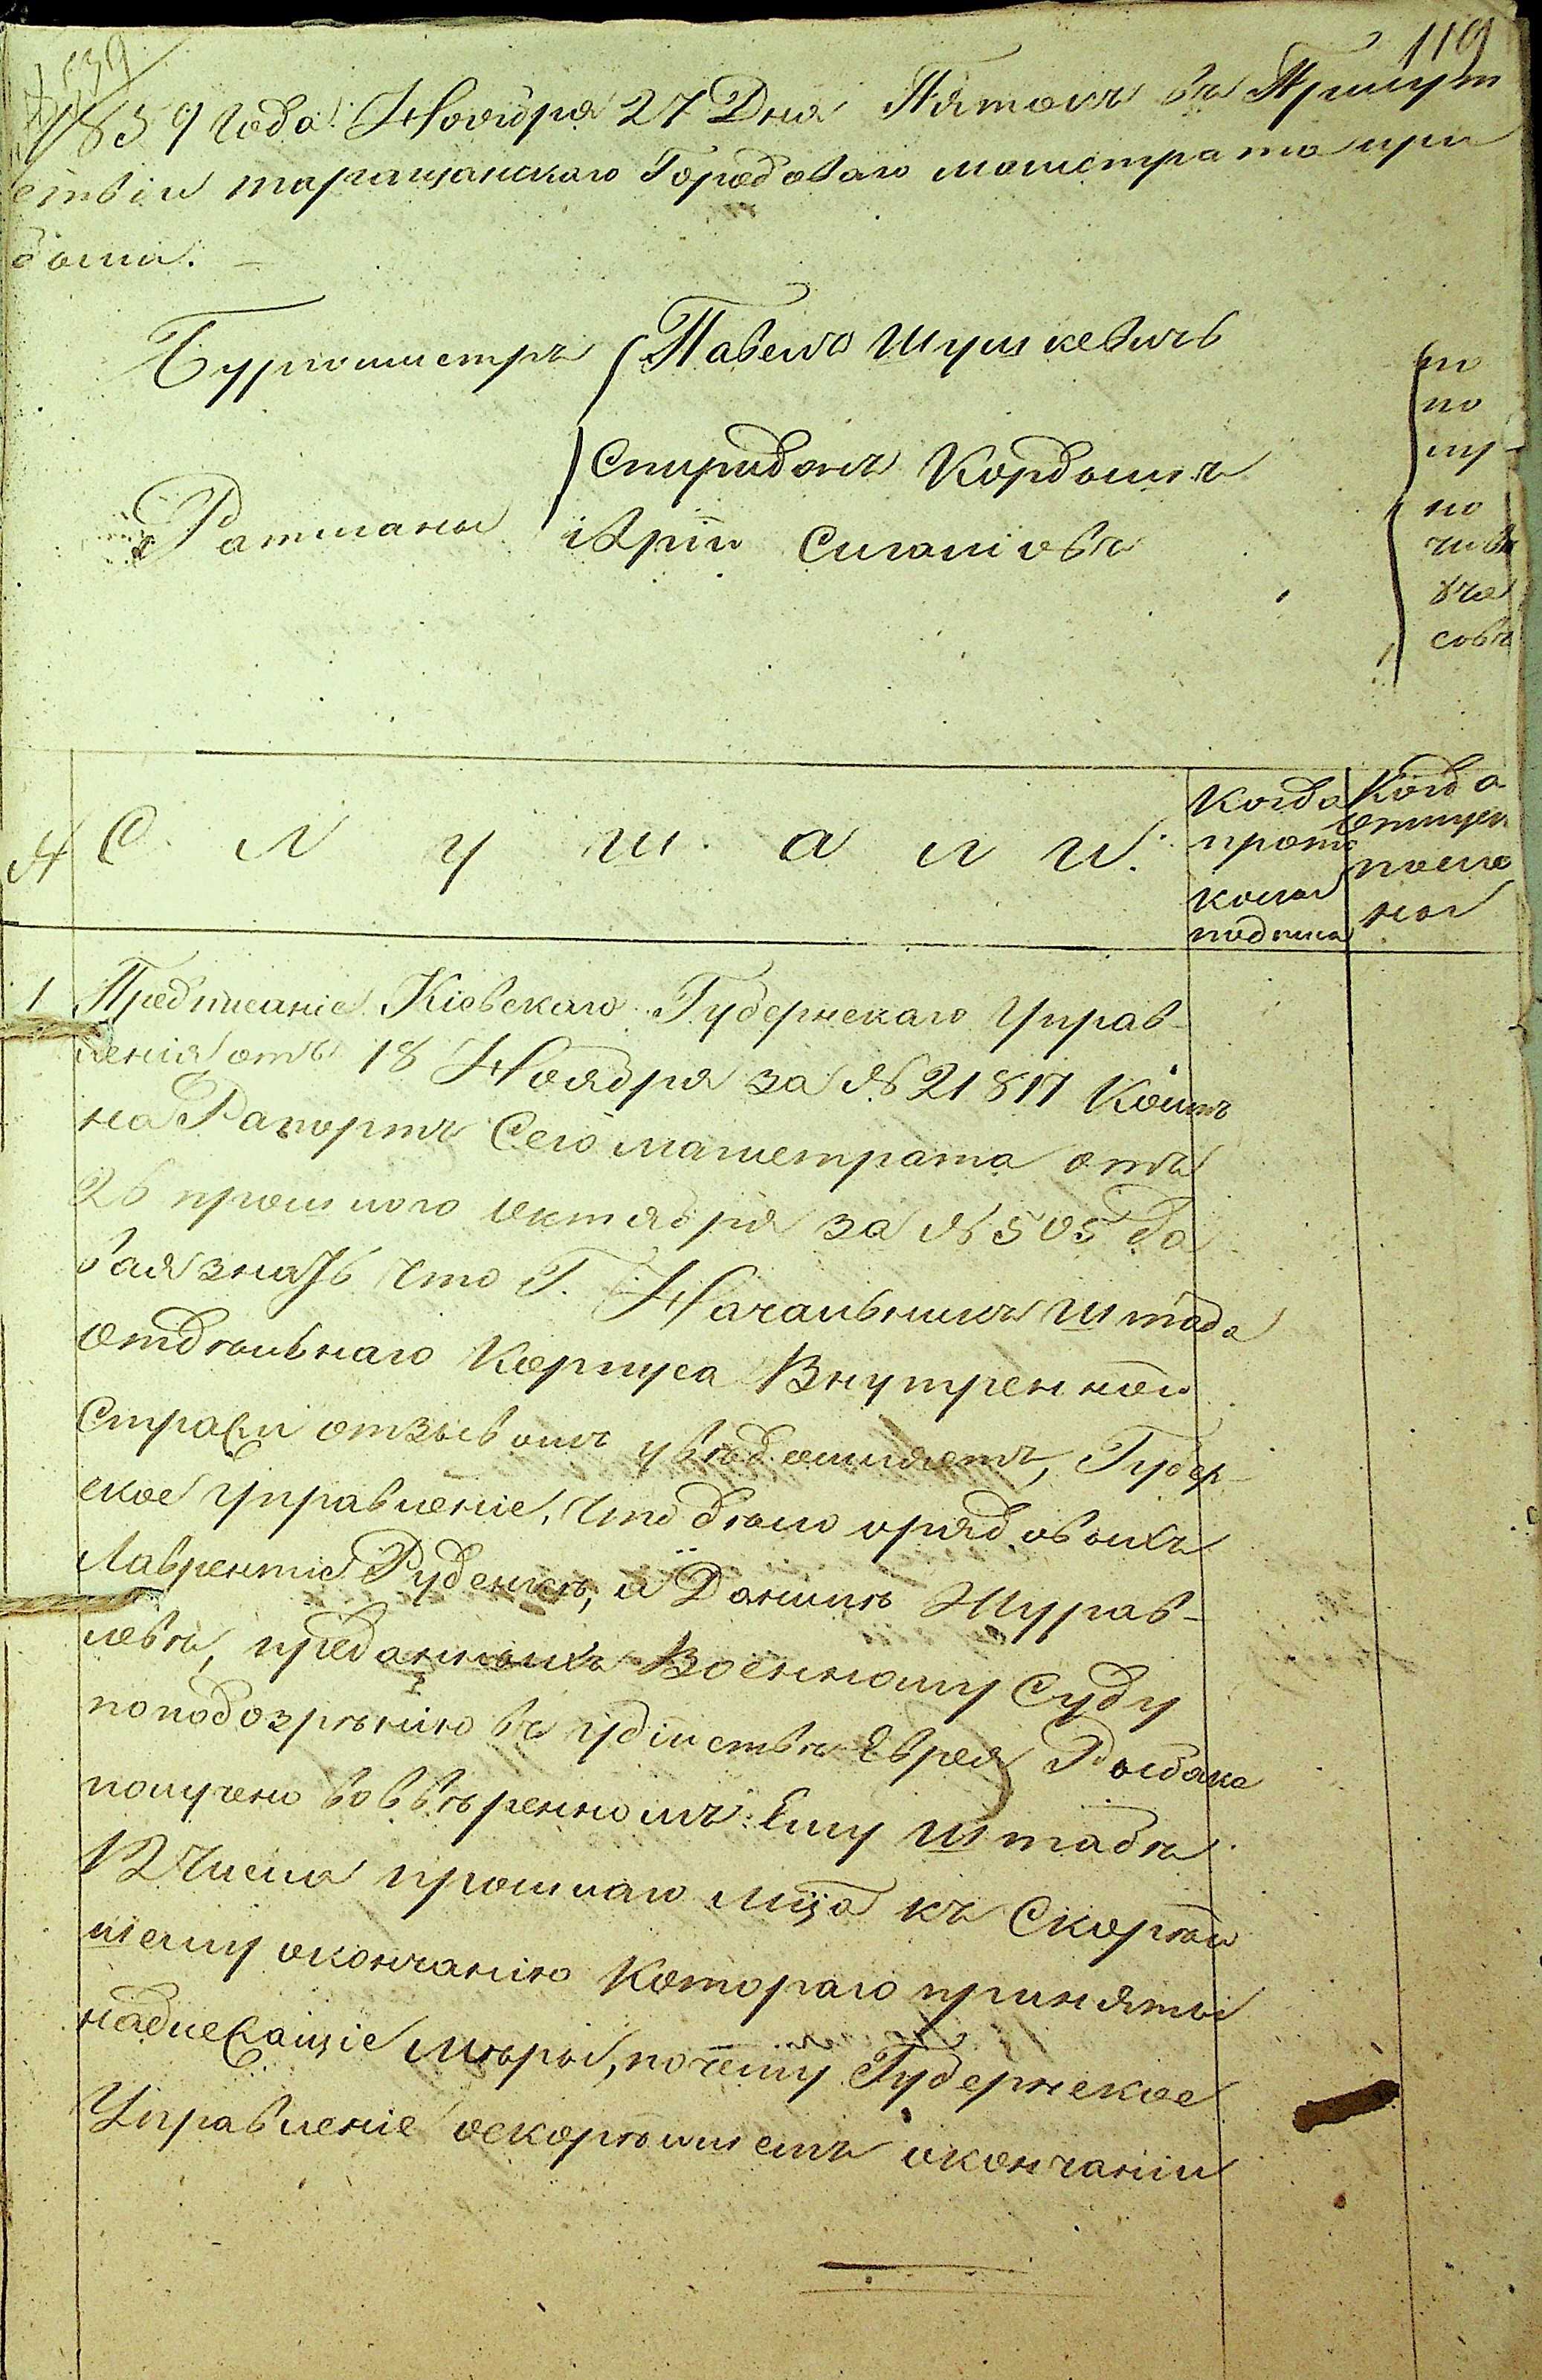 119
1859 года Ноября 27 Дня Пятокъ въ Присут
ствіи таращанскаго Городоваго магистрата при
были:
Бургомистръ Павелъ Шушкевичъ
Спиридонъ Кордашъ
Ратманы
по
по
лу
по
уча
совъ
№ С л у ш а л и:
Когда прото кола подписа
Когда отпущен полно
1 Предписаніе Кіевскаго Губернскаго Управ-
ленія отъ 18 Ноября за № 21817 Коимъ
на Рапортъ Сего магистрата отъ
26 прошлого октября за № 505 да
вая знать что Г. Начальникъ штаба
отдѣльнаго Корпуса Внутренной
Стражи отзывомъ увѣдомляетъ, Губер-
ское Управленіе, что дѣло орядовыхъ
Лаврентіе Руденкѣ, и Данилѣ Журав-
левѣ, преданныхъ Военному Суду
поподозрѣнію въ убійствѣ Еврея
получено во ввѣренномъ Ему штабѣ
12 числа прошлаго мца къ Скорѣй
шему окончанію Котораго приняты
надлежащіе мѣры, почему Губернское
Управленіе оскорѣйшемъ окончаніи